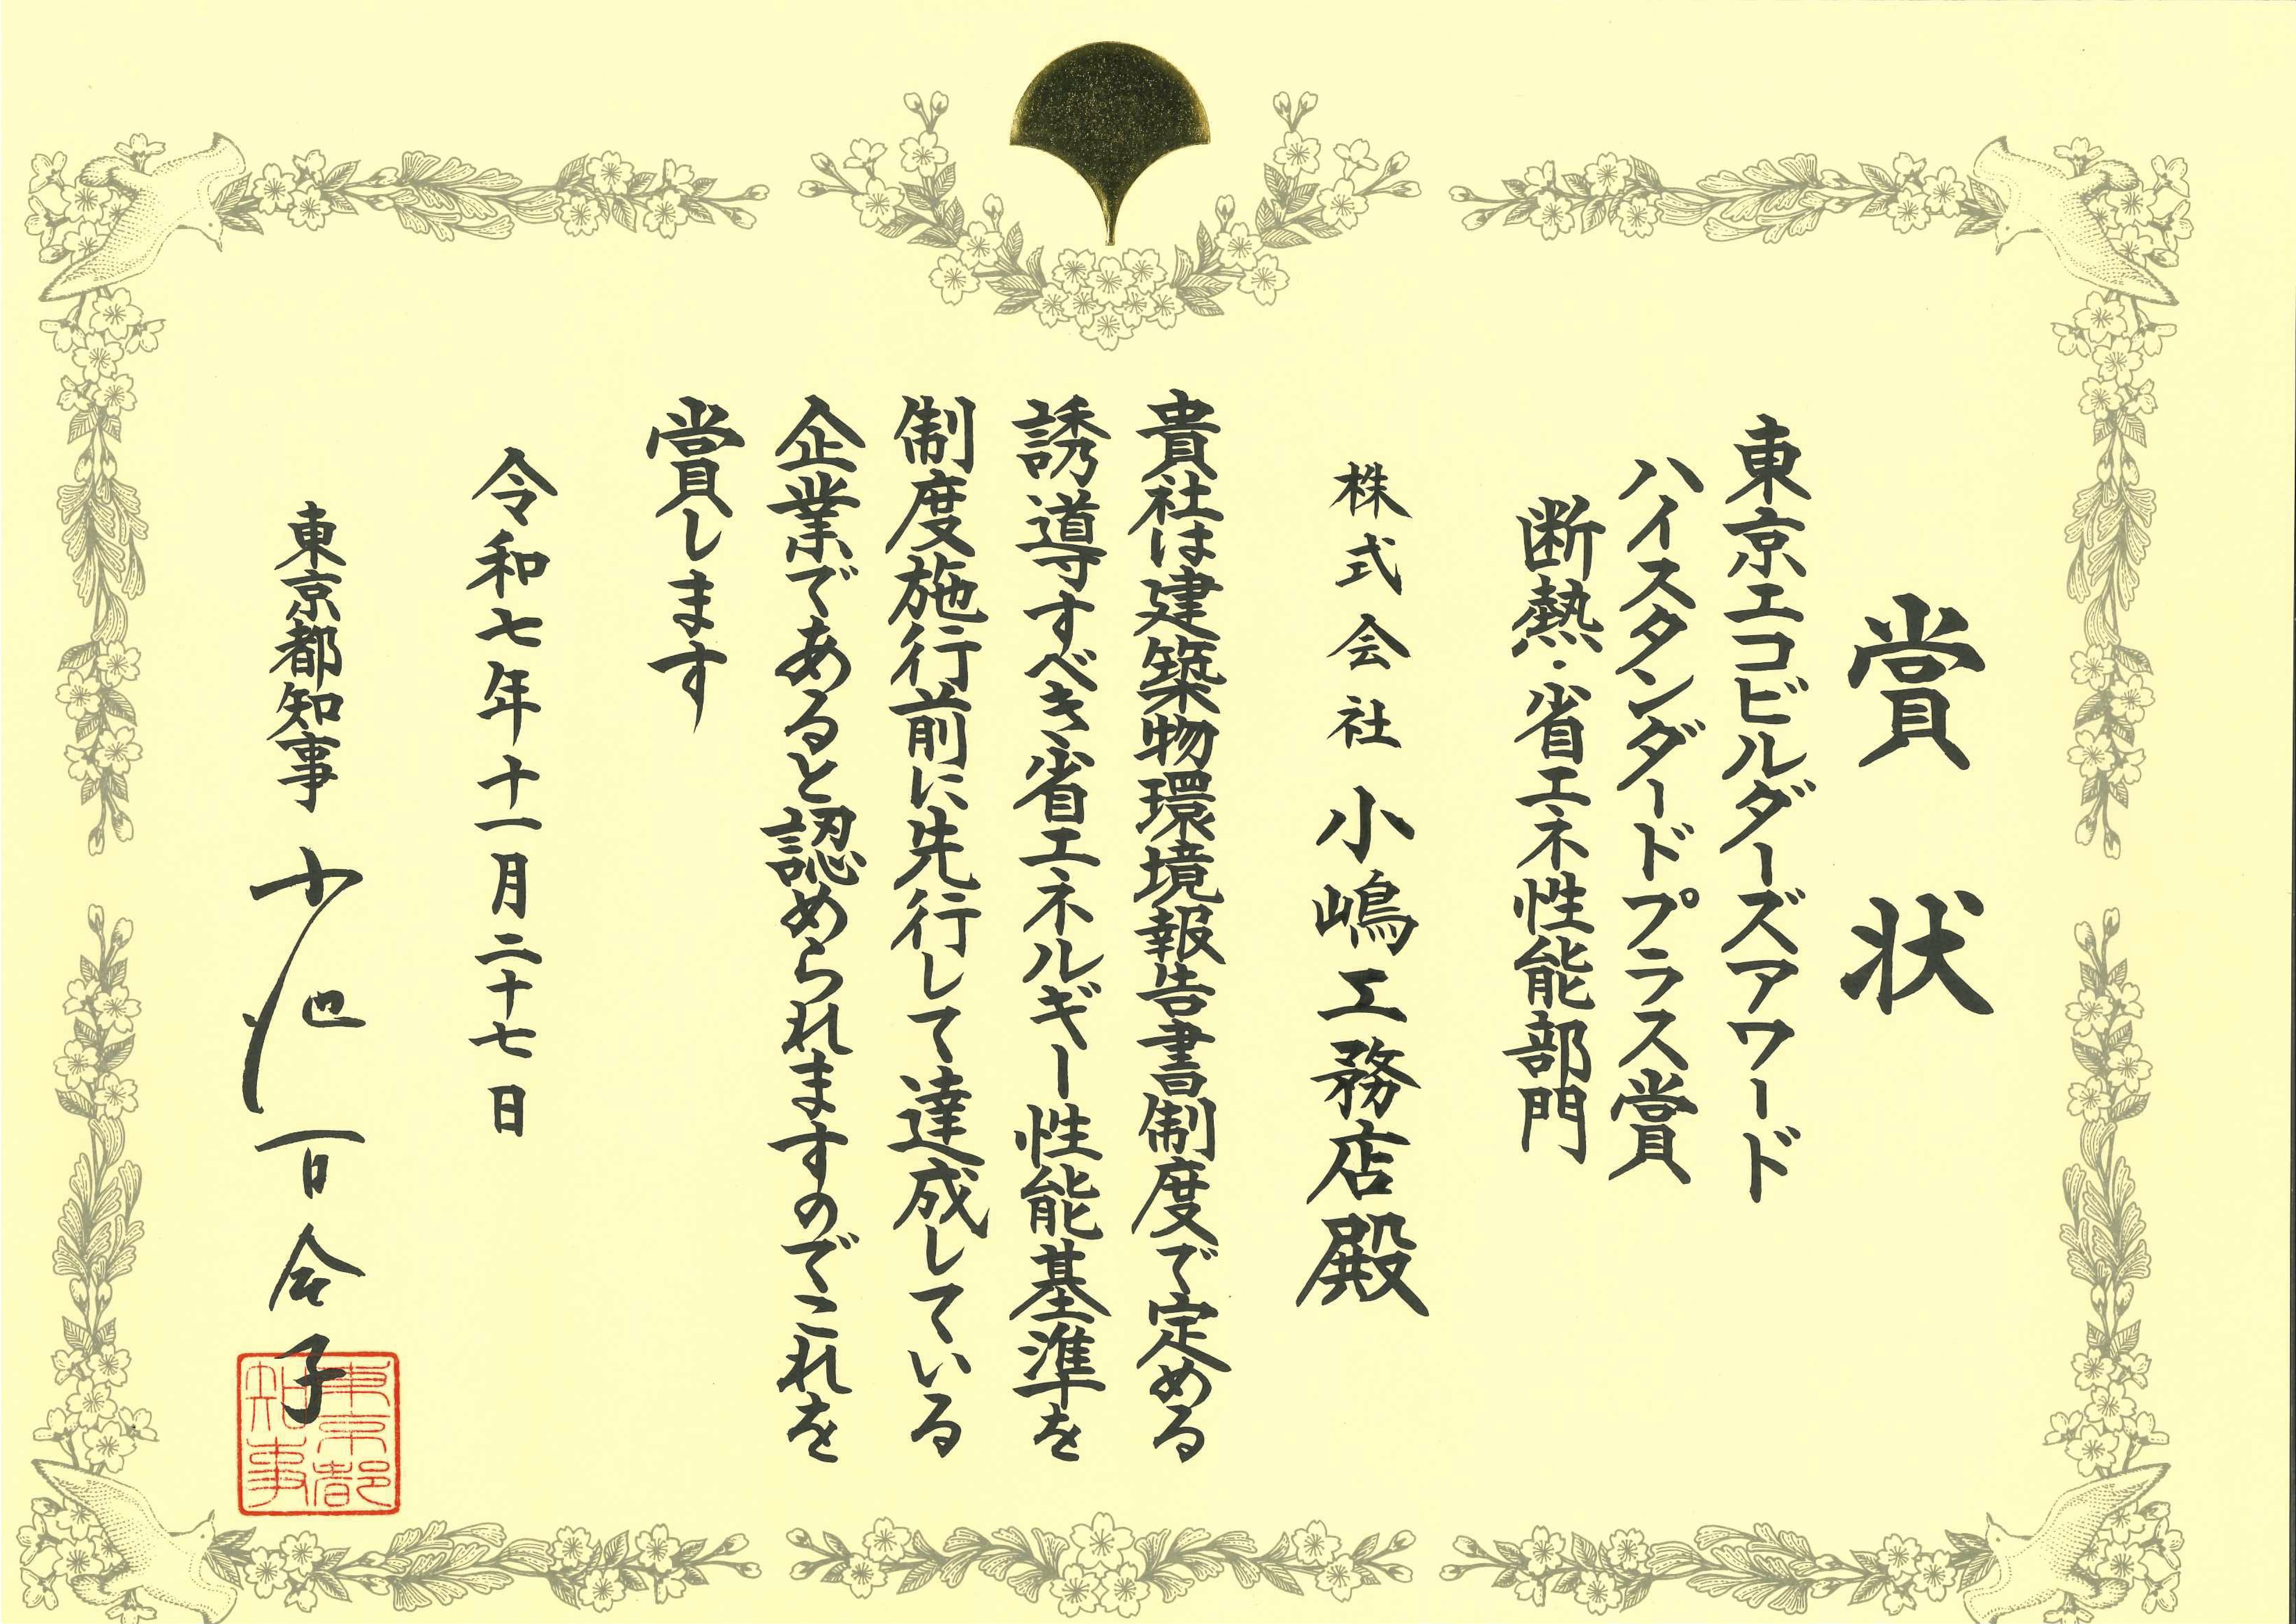 賞状
東京エコビルダーズアワード
ハイスタンダードプラス賞
断熱・省エネ性能部門
株式会社 小嶋工務店殿
貴社は建築物環境報告書制度で定める
誘導すべき省エネルギー性能基準を
制度施行前に先行して達成している
企業であると認められますのでこれを
賞します
令和七年十一月二十七日
東京都知事 小池百合子
東京都
知事